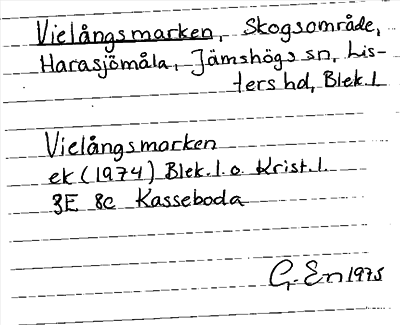 Vielångsmarken, Skogsområde,
Harasjömåla, Jämshögs sn, Lis-
ters hd, Blek.l.
Vielångsmarken
ek (1974) Blek.l. o. Krist.l.
3E 8c Kasseboda
G. En 1975